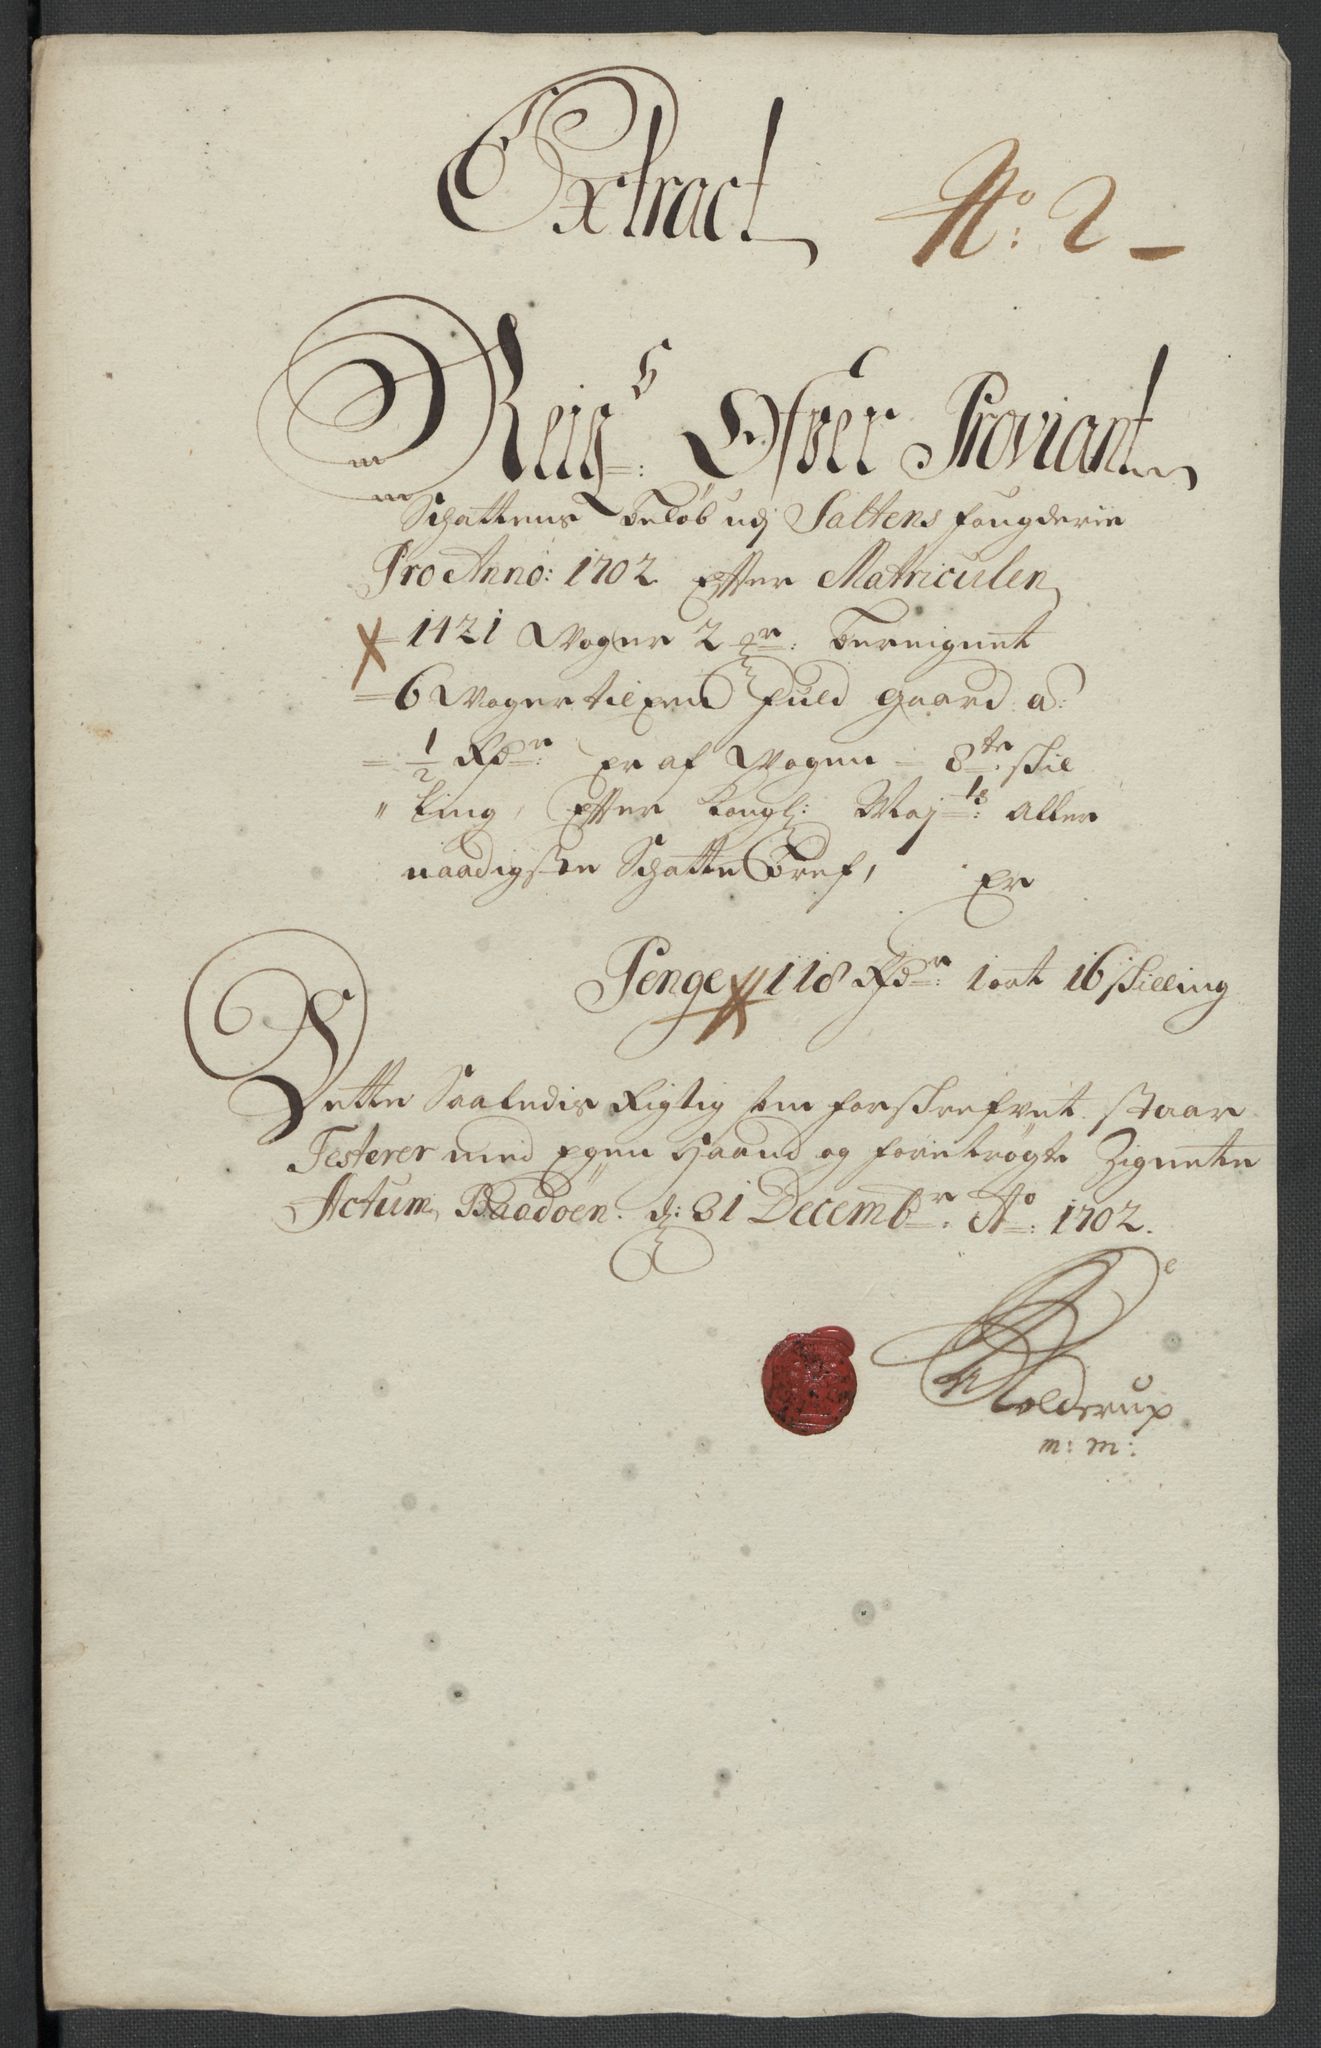 Extract
No: 2
Reigs: Ofver Proviant
Schattens beløb udj Saltens fougderie
Pro Anno: 1702 Efter Matriculen
1421 Woger 2 pr: bereignet
6 Woger til Een fuld gaard a:
1/2 Rdr: Er af Wogen 8te skil
ling, Efter kongl: Majts: aller
naadigste Schatte bref, Er
Penge 118 Rdr: 1 ort 16 skilling
Dette Saaledis Rigtig som forskrefvet staar
Testerer med Egen haand og foretrøgte Zignette
Actum, Baadøen. d: 31 Decembr: Ao: 1702.
Rolderup
m: m: